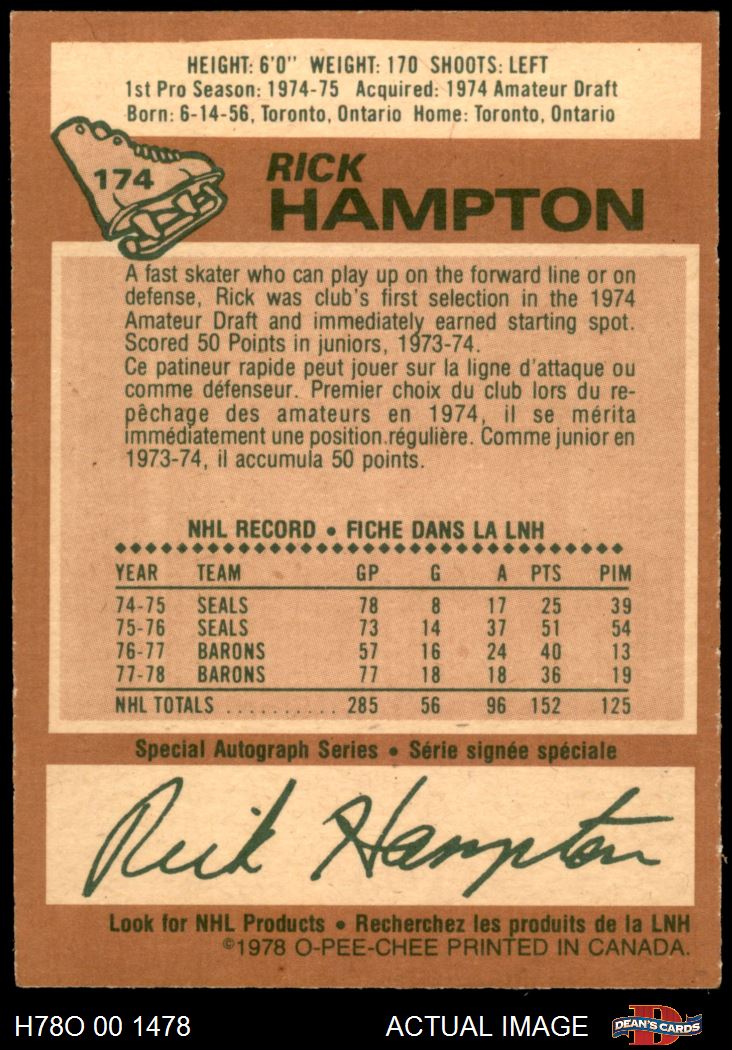 HEIGHT: 6'0" WEIGHT: 170 SHOOTS: LEFT
1st Pro Season: 1974-75 Acquired: 1974 Amateur Draft
Born: 6-14-56, Toronto, Ontario Home: Toronto, Ontario
174
RICK
HAMPTON
A fast skater who can play up on the forward line or on
defense, Rick was club's first selection in the 1974
Amateur Draft and immediately earned starting spot.
Scored 50 Points in juniors, 1973-74.
Ce patineur rapide peut jouer sur la ligne d'attaque ou
comme défenseur. Premier choix du club lors du re-
pêchage des amateurs en 1974, il se mérita
immédiatement une position régulière. Comme junior en
1973-74, il accumula 50 points.
NHL RECORD • FICHE DANS LA LNH
YEAR TEAM GP G A PTS PIM
74-75 SEALS 78 8 17 25 39
75-76 SEALS 73 14 37 51 54
76-77 BARONS 57 16 24 40 13
77-78 BARONS 77 18 18 36 19
NHL TOTALS .......... 285 56 96 152 125
Special Autograph Series • Série signée spéciale
Rick Hampton
Look for NHL Products • Recherchez les produits de la LNH
©1978 O-PEE-CHEE PRINTED IN CANADA.
H78O 00 1478 ACTUAL IMAGE D DEAN'S CARDS